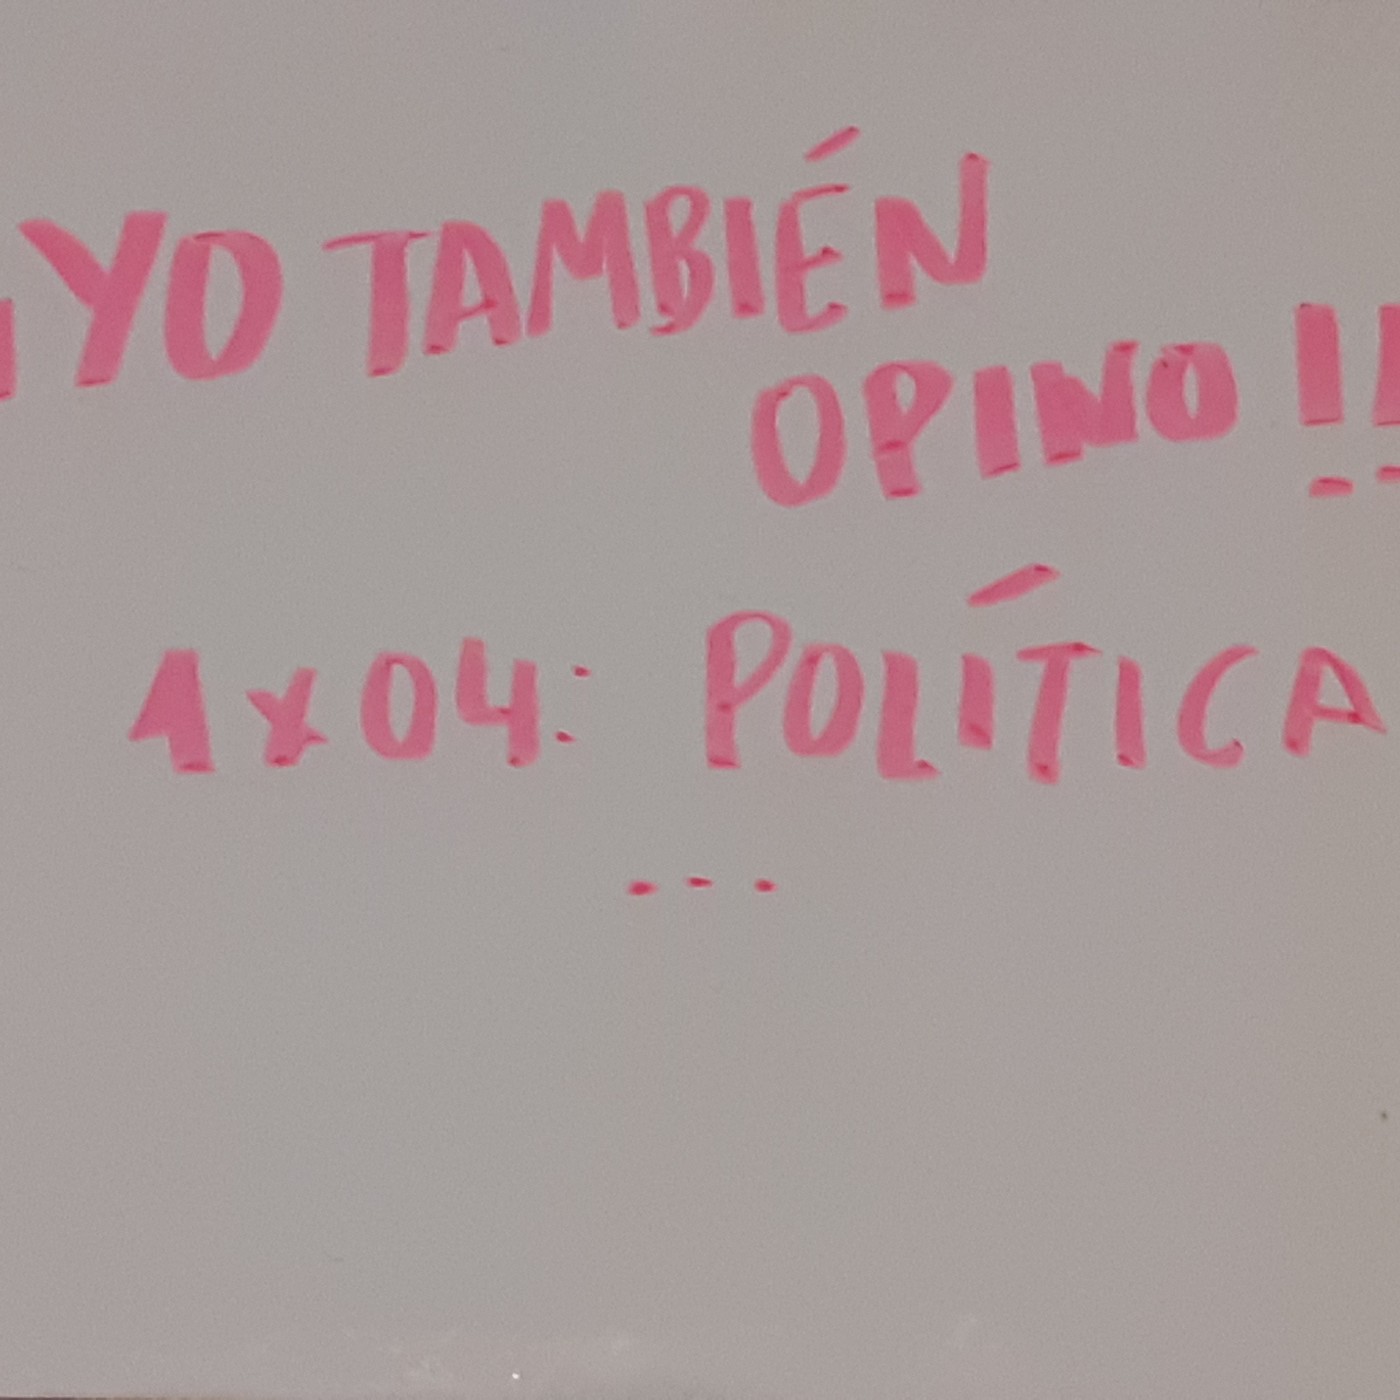 ¡YO TAMBIÉN
OPINO!!
1x04: POLÍTICA
...